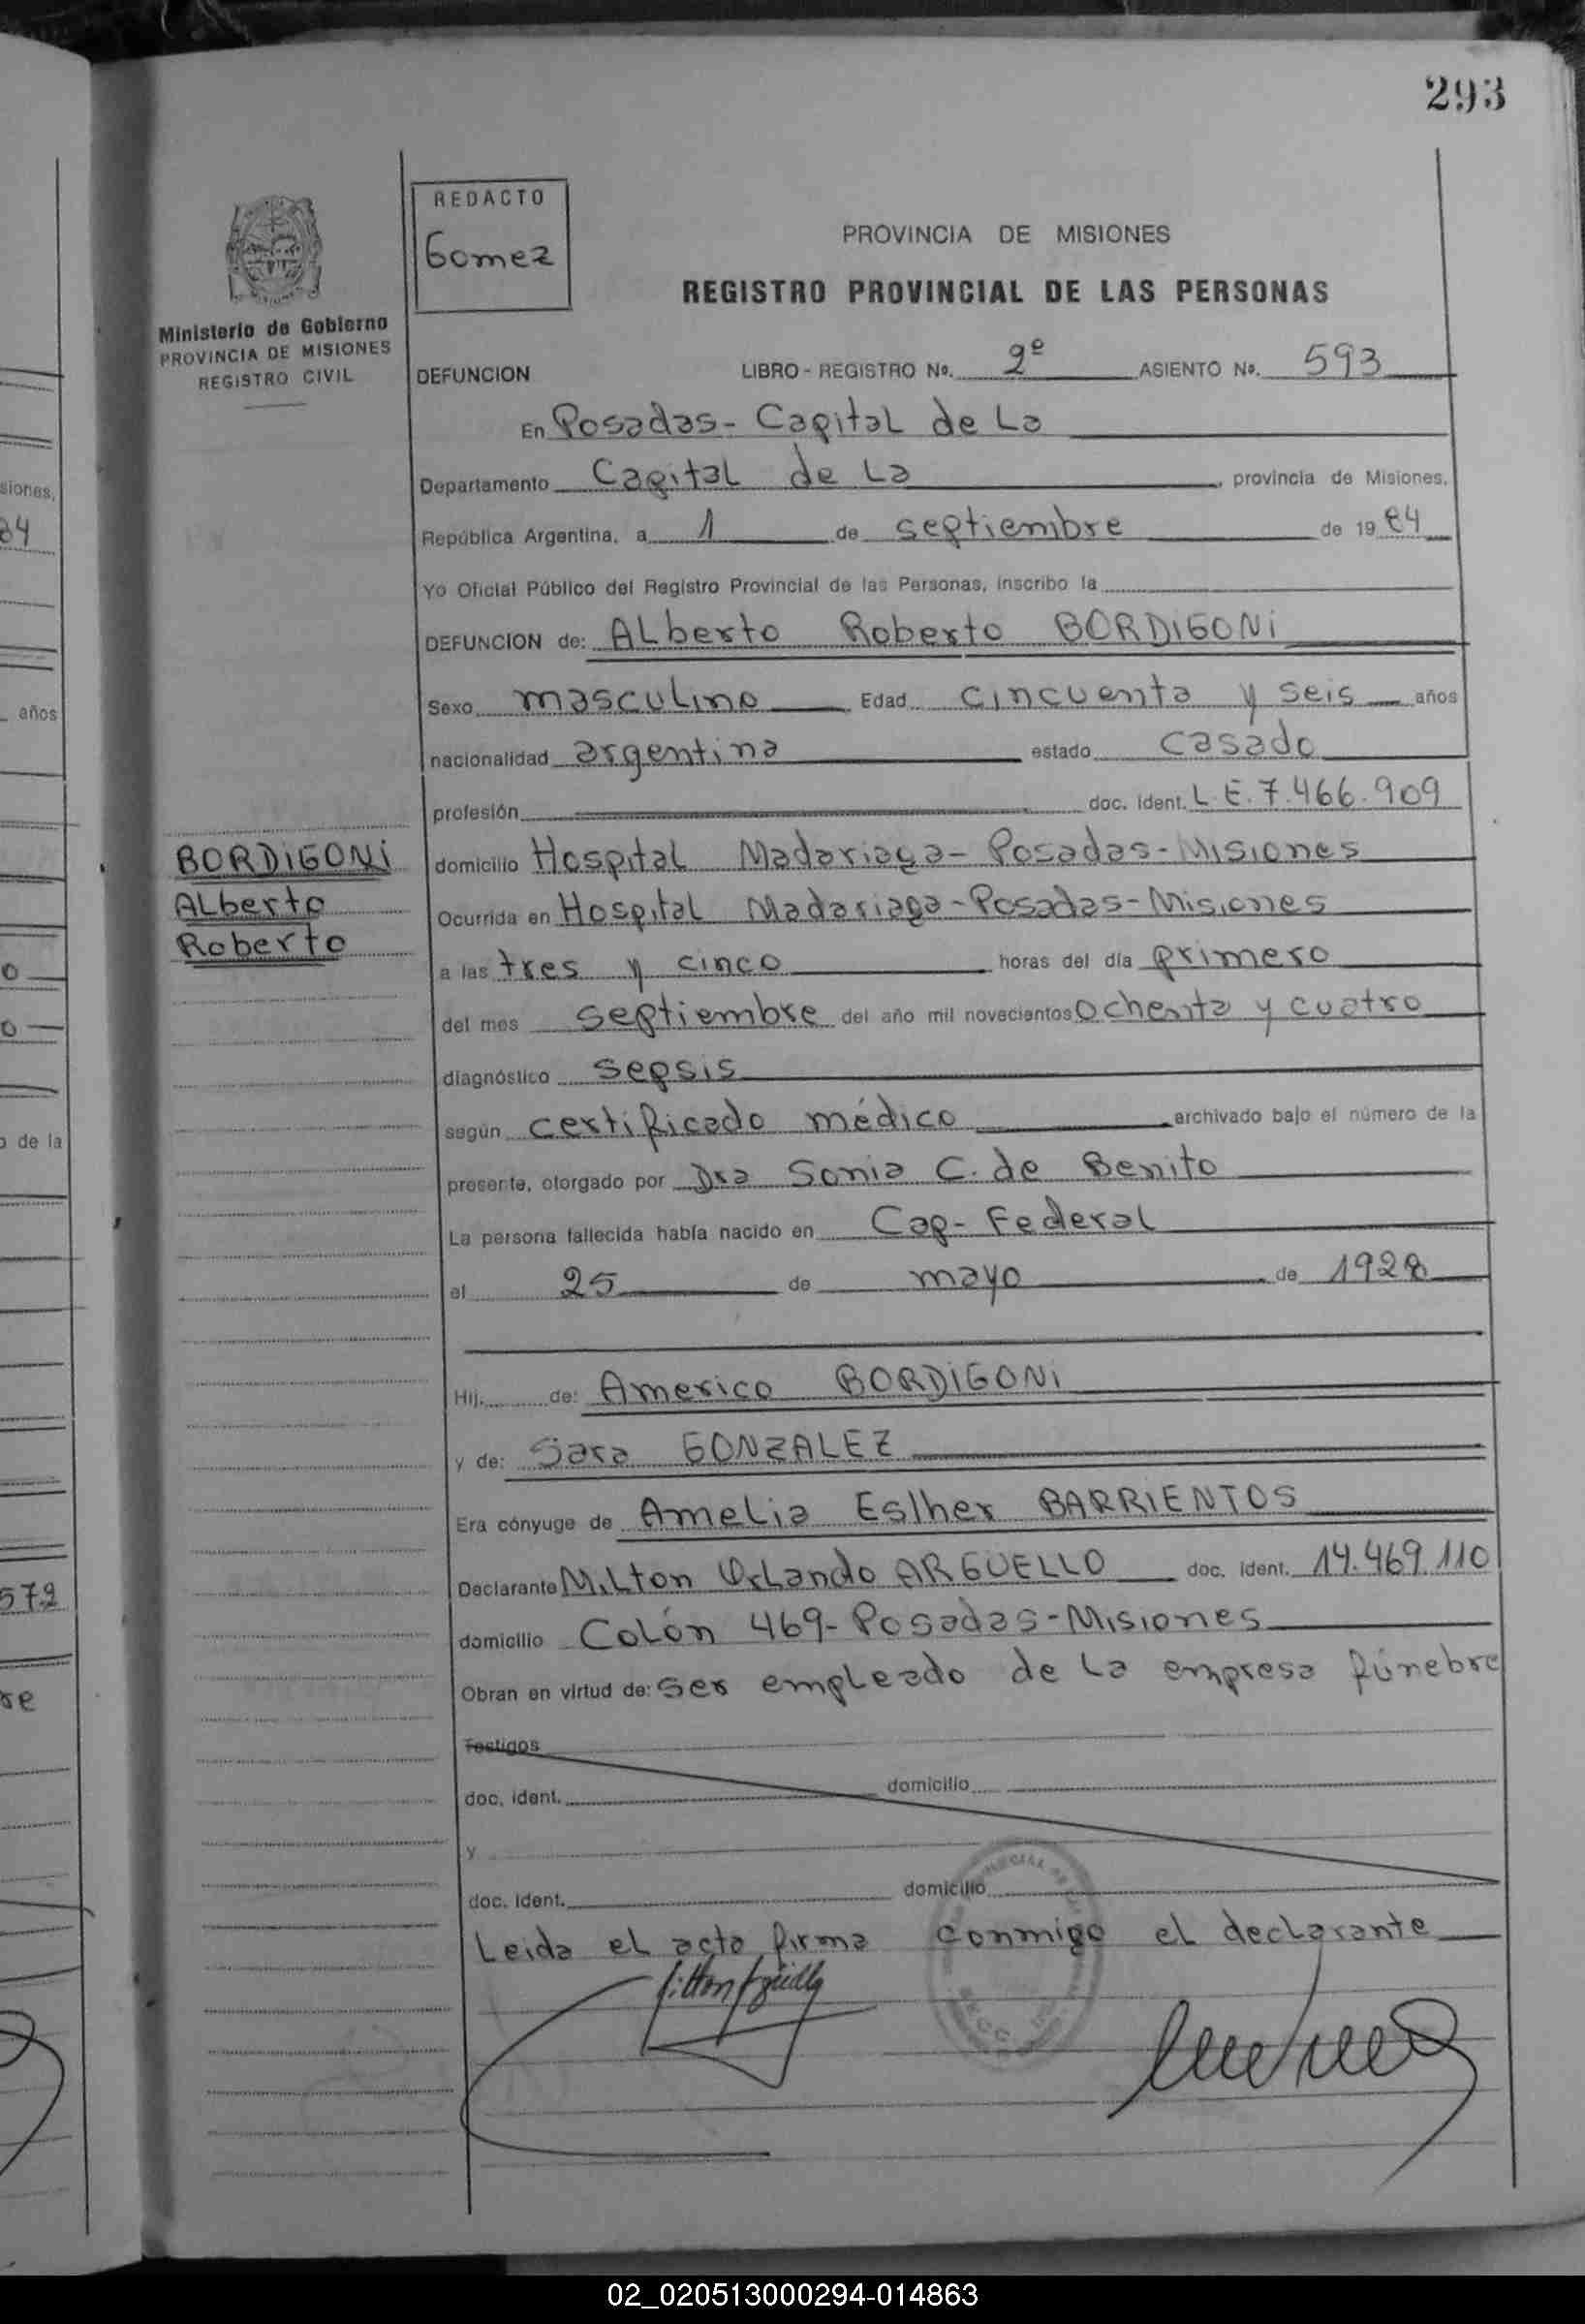 293
REDACTO
Gomez
Ministerio de Gobierno
PROVINCIA DE MISIONES
REGISTRO CIVIL
PROVINCIA DE MISIONES
REGISTRO PROVINCIAL DE LAS PERSONAS
DEFUNCION LIBRO - REGISTRO No. 2º ASIENTO No. 593
En Posadas - Capital de La
Departamento Capital de La, provincia de Misiones,
República Argentina, a 1 de septiembre de 1984
Yo Oficial Público del Registro Provincial de las Personas, inscribo la
DEFUNCION de: ALberto Roberto BORDIGONI
Sexo masculino Edad cincuenta y seis años
nacionalidad argentina estado casado
profesión doc. ident. L.E. 7.466.909
domicilio Hospital Madariaga - Posadas - Misiones
Ocurrida en Hospital Madariaga - Posadas - Misiones
a las tres y cinco horas del día primero
del mes septiembre del año mil novecientos ochenta y cuatro
diagnóstico sepsis
según certificado médico archivado bajo el número de la
presente, otorgado por Dra Sonia C. de Benito
La persona fallecida había nacido en Cap - Federal
el 25 de mayo de 1928
Hij de: Americo BORDIGONI
y de: Sara GONZALEZ
Era cónyuge de Amelia Eslher BARRIENTOS
Declarante Milton Orlando ARGUELLO doc. ident. 14.469.110
domicilio Colón 469 - Posadas - Misiones
Obran en virtud de: ser empleado de la empresa fúnebre
Testigos
doc. ident. domicilio
y
doc. ident. domicilio
Leida el acta firma conmigo el declarante
BORDIGONI
ALberto
Roberto
siones,
84
años
o
o
o de la
572
re
02_020513000294-014863